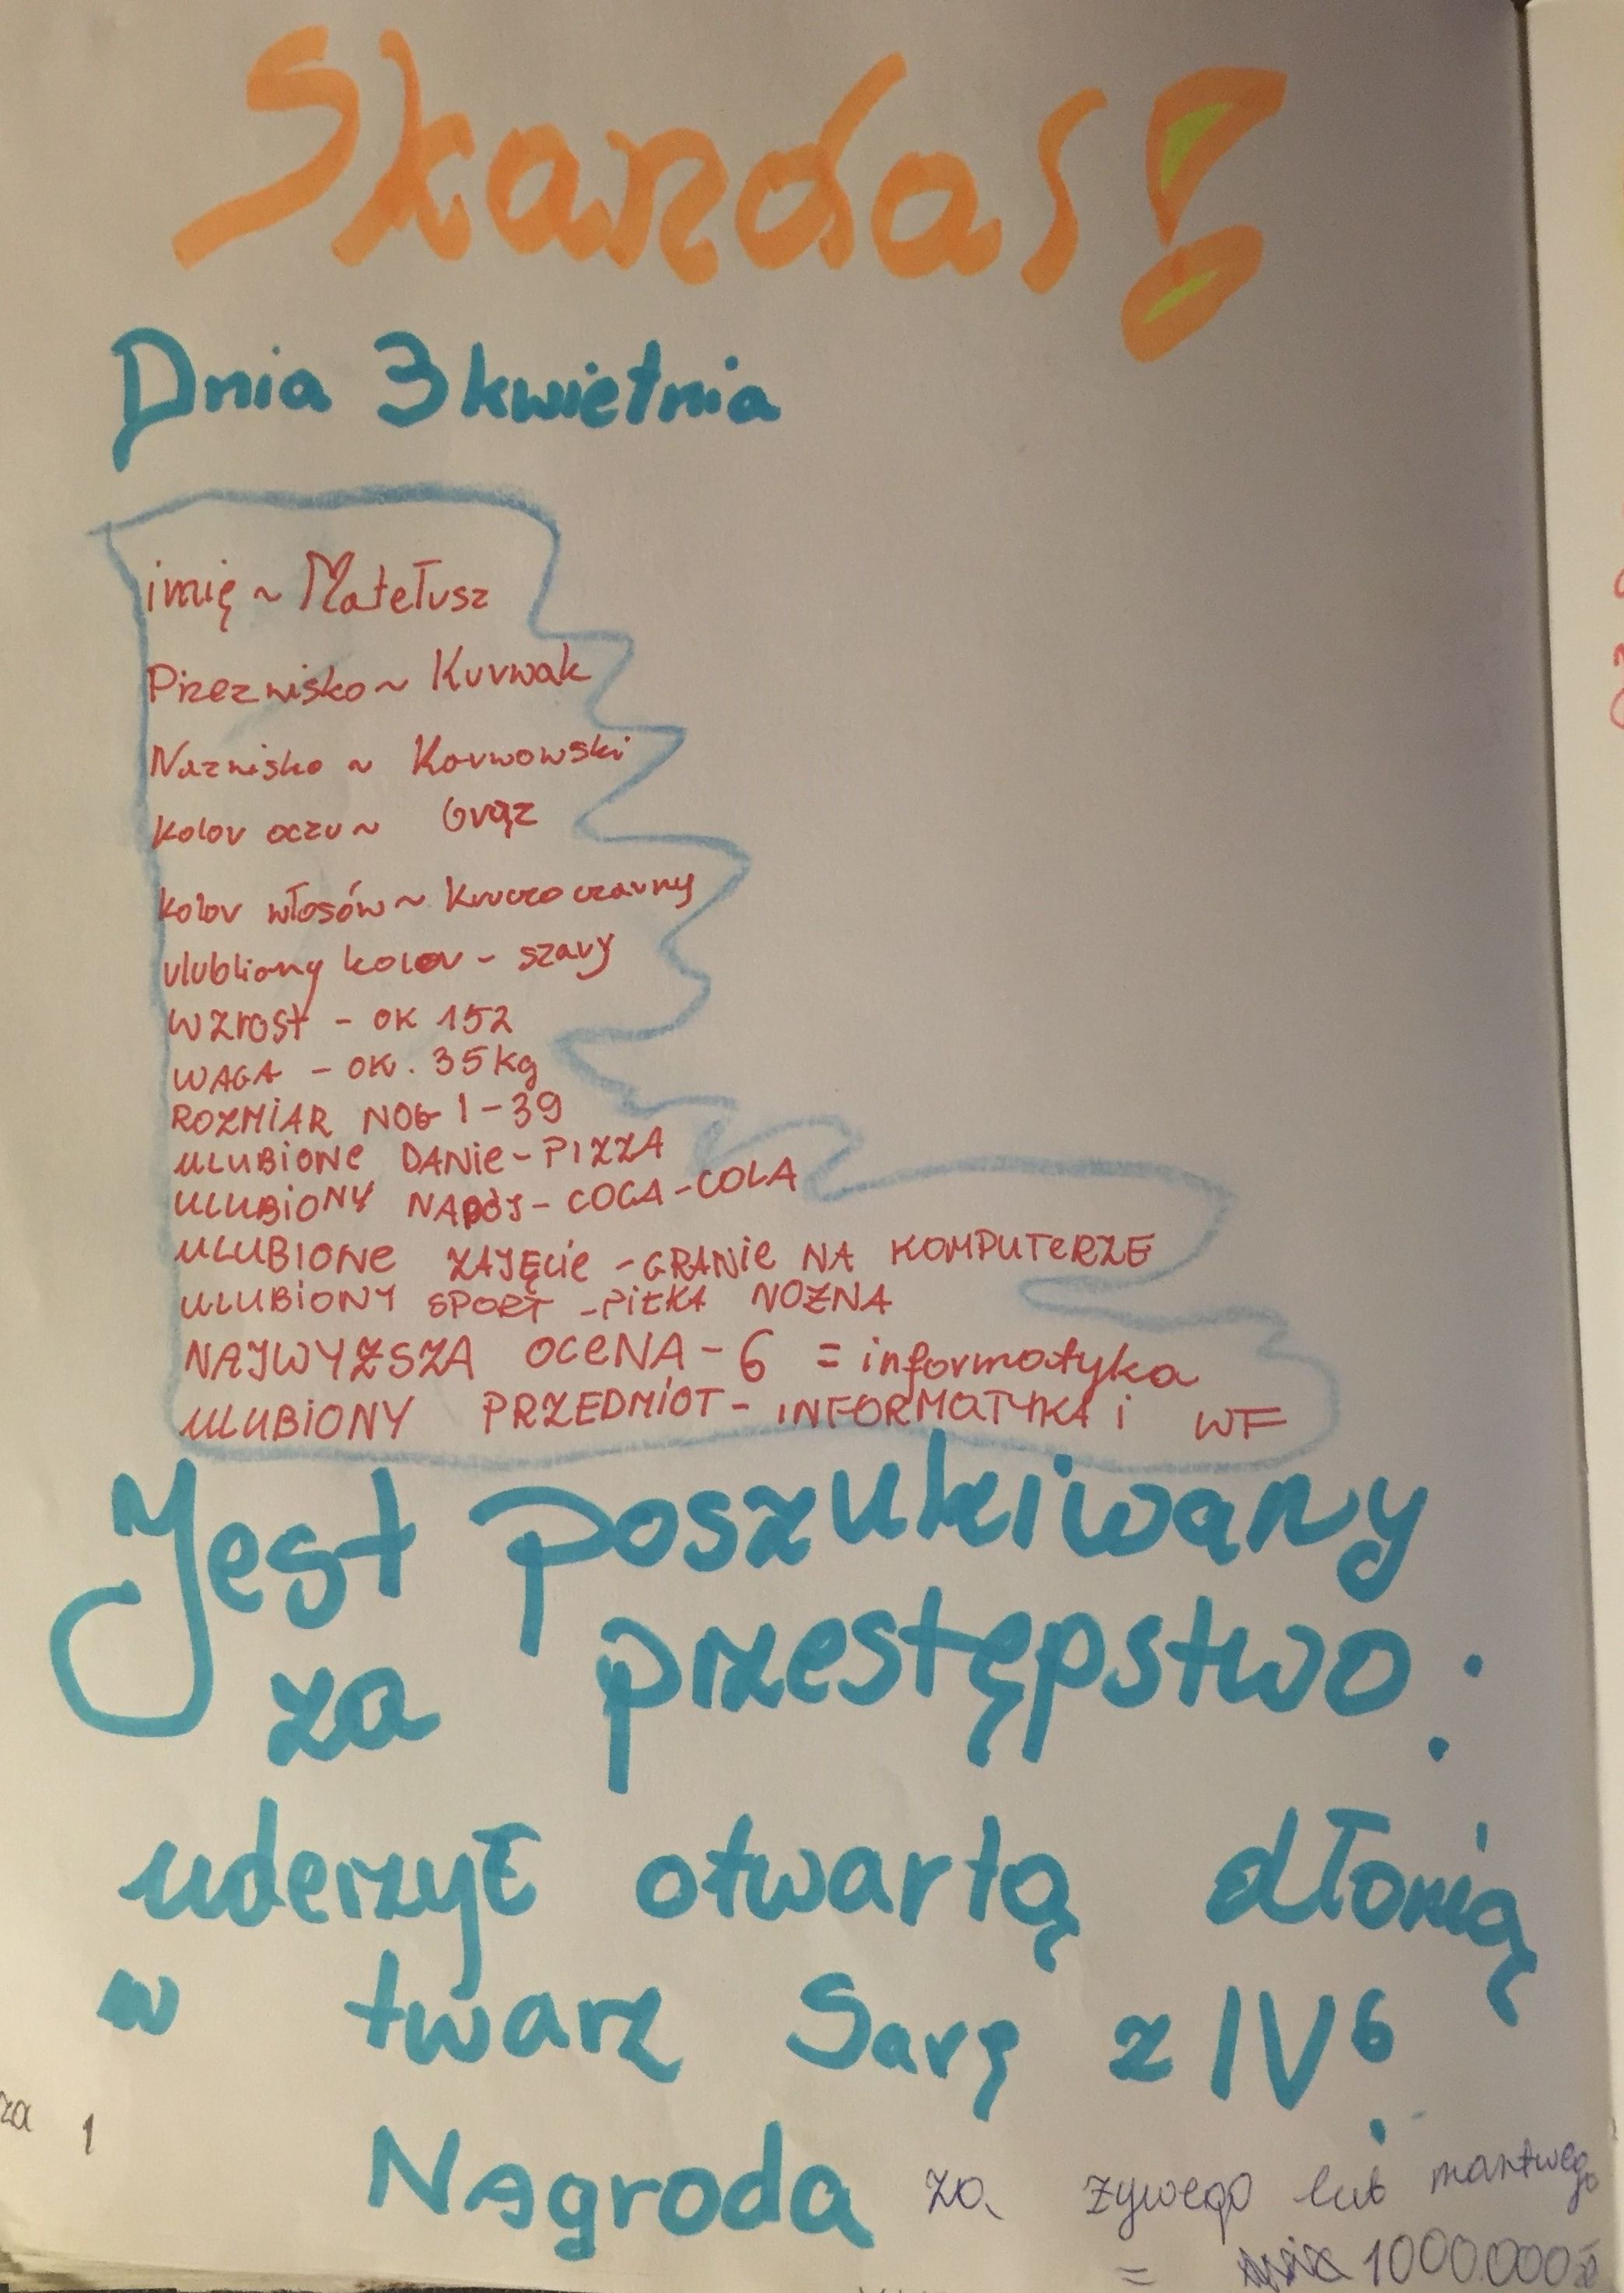 Skandal!
Dnia 3 kwietnia
imię ~ Matełusz
Przezwisko ~ Kurwak
Nazwisko ~ Karwowski
kolor oczu ~ brąz
kolor włosów ~ kruczoczarny
ulubiony kolor - szary
wzrost - OK 152
WAGA - OK. 35kg
ROZMIAR NOG I - 39
ULUBIONE DANIE - PIZZA
ULUBIONY NAPÓJ - COCA-COLA
ULUBIONE ZAJĘCIE - GRANIE NA KOMPUTERZE
ULUBIONY SPORT - PIŁKA NOŻNA
NAJWYŻSZA OCENA - 6 = informatyka
ULUBIONY PRZEDMIOT - INFORMATYKA i WF
Jest poszukiwany
za przestępstwo:
uderzył otwartą dłonią
w twarz Sarę z IV6
za 1
Nagroda za żywego lub martwego
= 1000.000zł